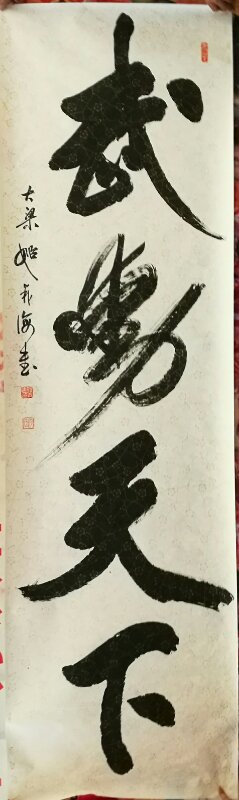 武動天下
大梁姚飛海書